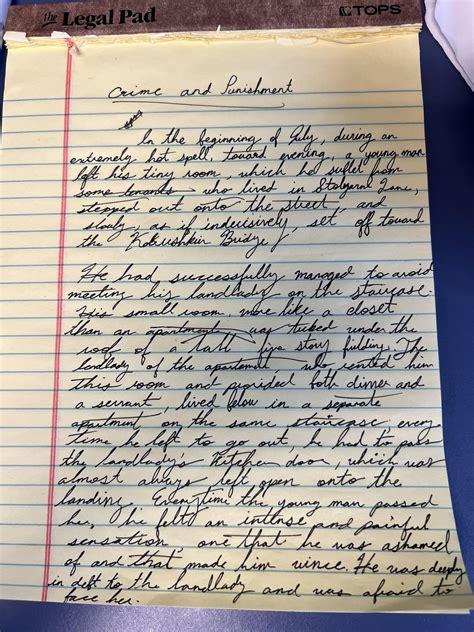 the Legal Pad TOPS
Crime and Punishment
In the beginning of July, during an
extremely hot spell, toward evening, a young man
left his tiny room, which he sublet from
some tenants who lived in Stolyarni Lane,
stepped out onto the street, and
slowly, as if indecisively, set off toward
the Bridge
He had successfully managed to avoid
meeting his landlady on the staircase.
His small room, more like a closet
than an apartment, was tucked under the
roof of a tall five story The
landlady of the apartment, who rented him
this room and provided both dinner and
a servant, lived below in a separate
apartment on the same staircase, every
time he left to go out, he had to pass
the landlady's kitchen door, which was
almost always left open onto the
landing. Everytime the young man passed
her, he felt an intense and painful
sensation, one that he was ashamed
of and that made him wince. He was deeply
in debt to the landlady and was afraid to
face her.